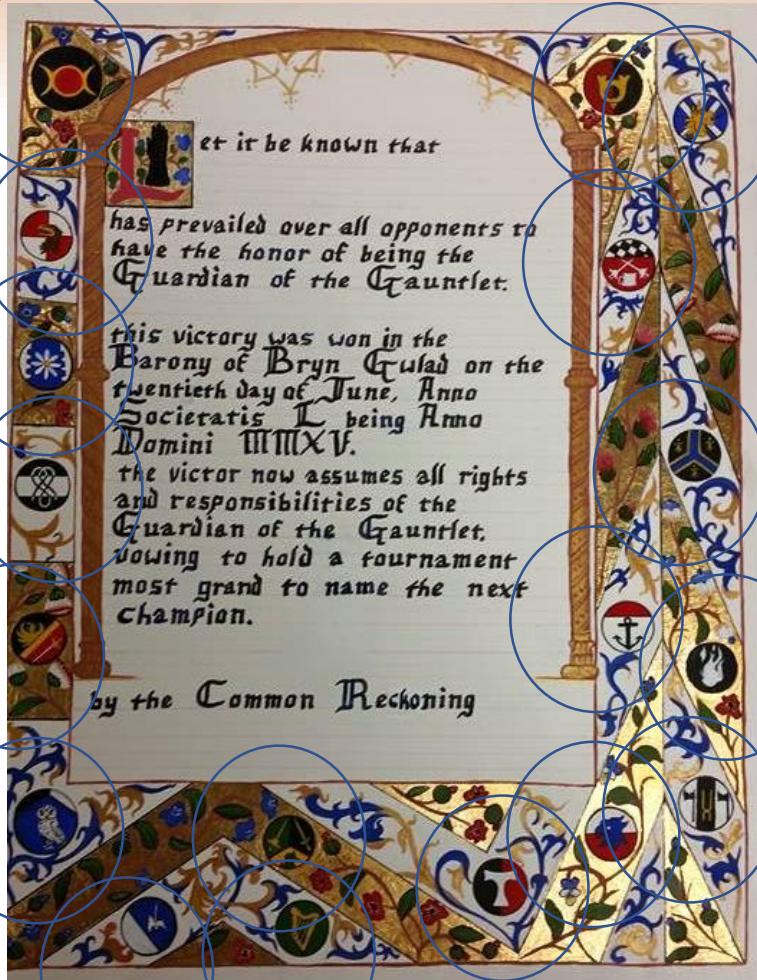 Let it be known that
has prevailed over all opponents to
have the honor of being the
Guardian of the Gauntlet.
this victory was won in the
Barony of Bryn Gwlad on the
twentieth day of June, Anno
Societatis L being Anno
Domini MMXV.
the victor now assumes all rights
and responsibilities of the
Guardian of the Gauntlet,
vowing to hold a tournament
most grand to name the next
champion.
by the Common Reckoning